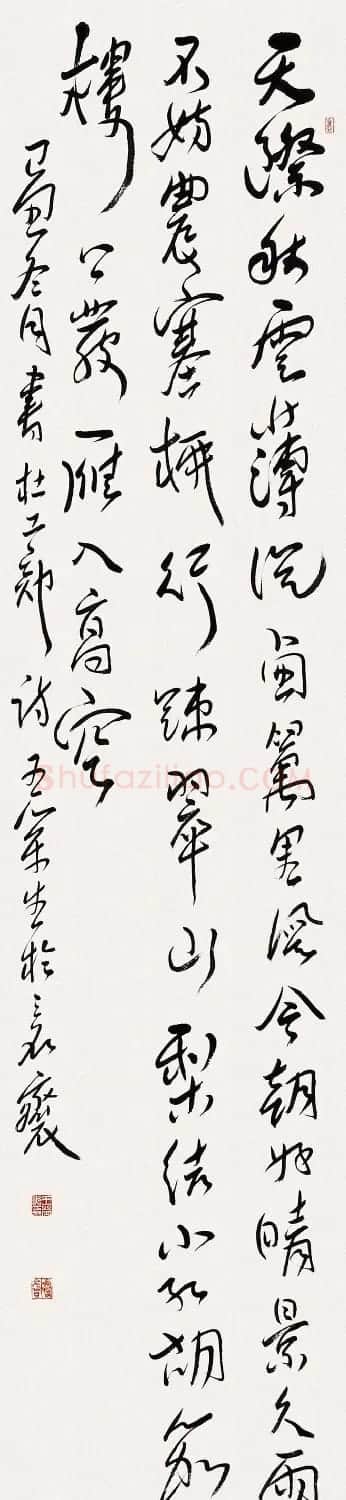 天際秋雲薄從西萬里風今朝好晴景久雨
不妨農塞柳行疎翠山梨結小紅胡笳
樓上發一雁入高空
己丑冬月書杜工部詩
Shufaziliao.COM